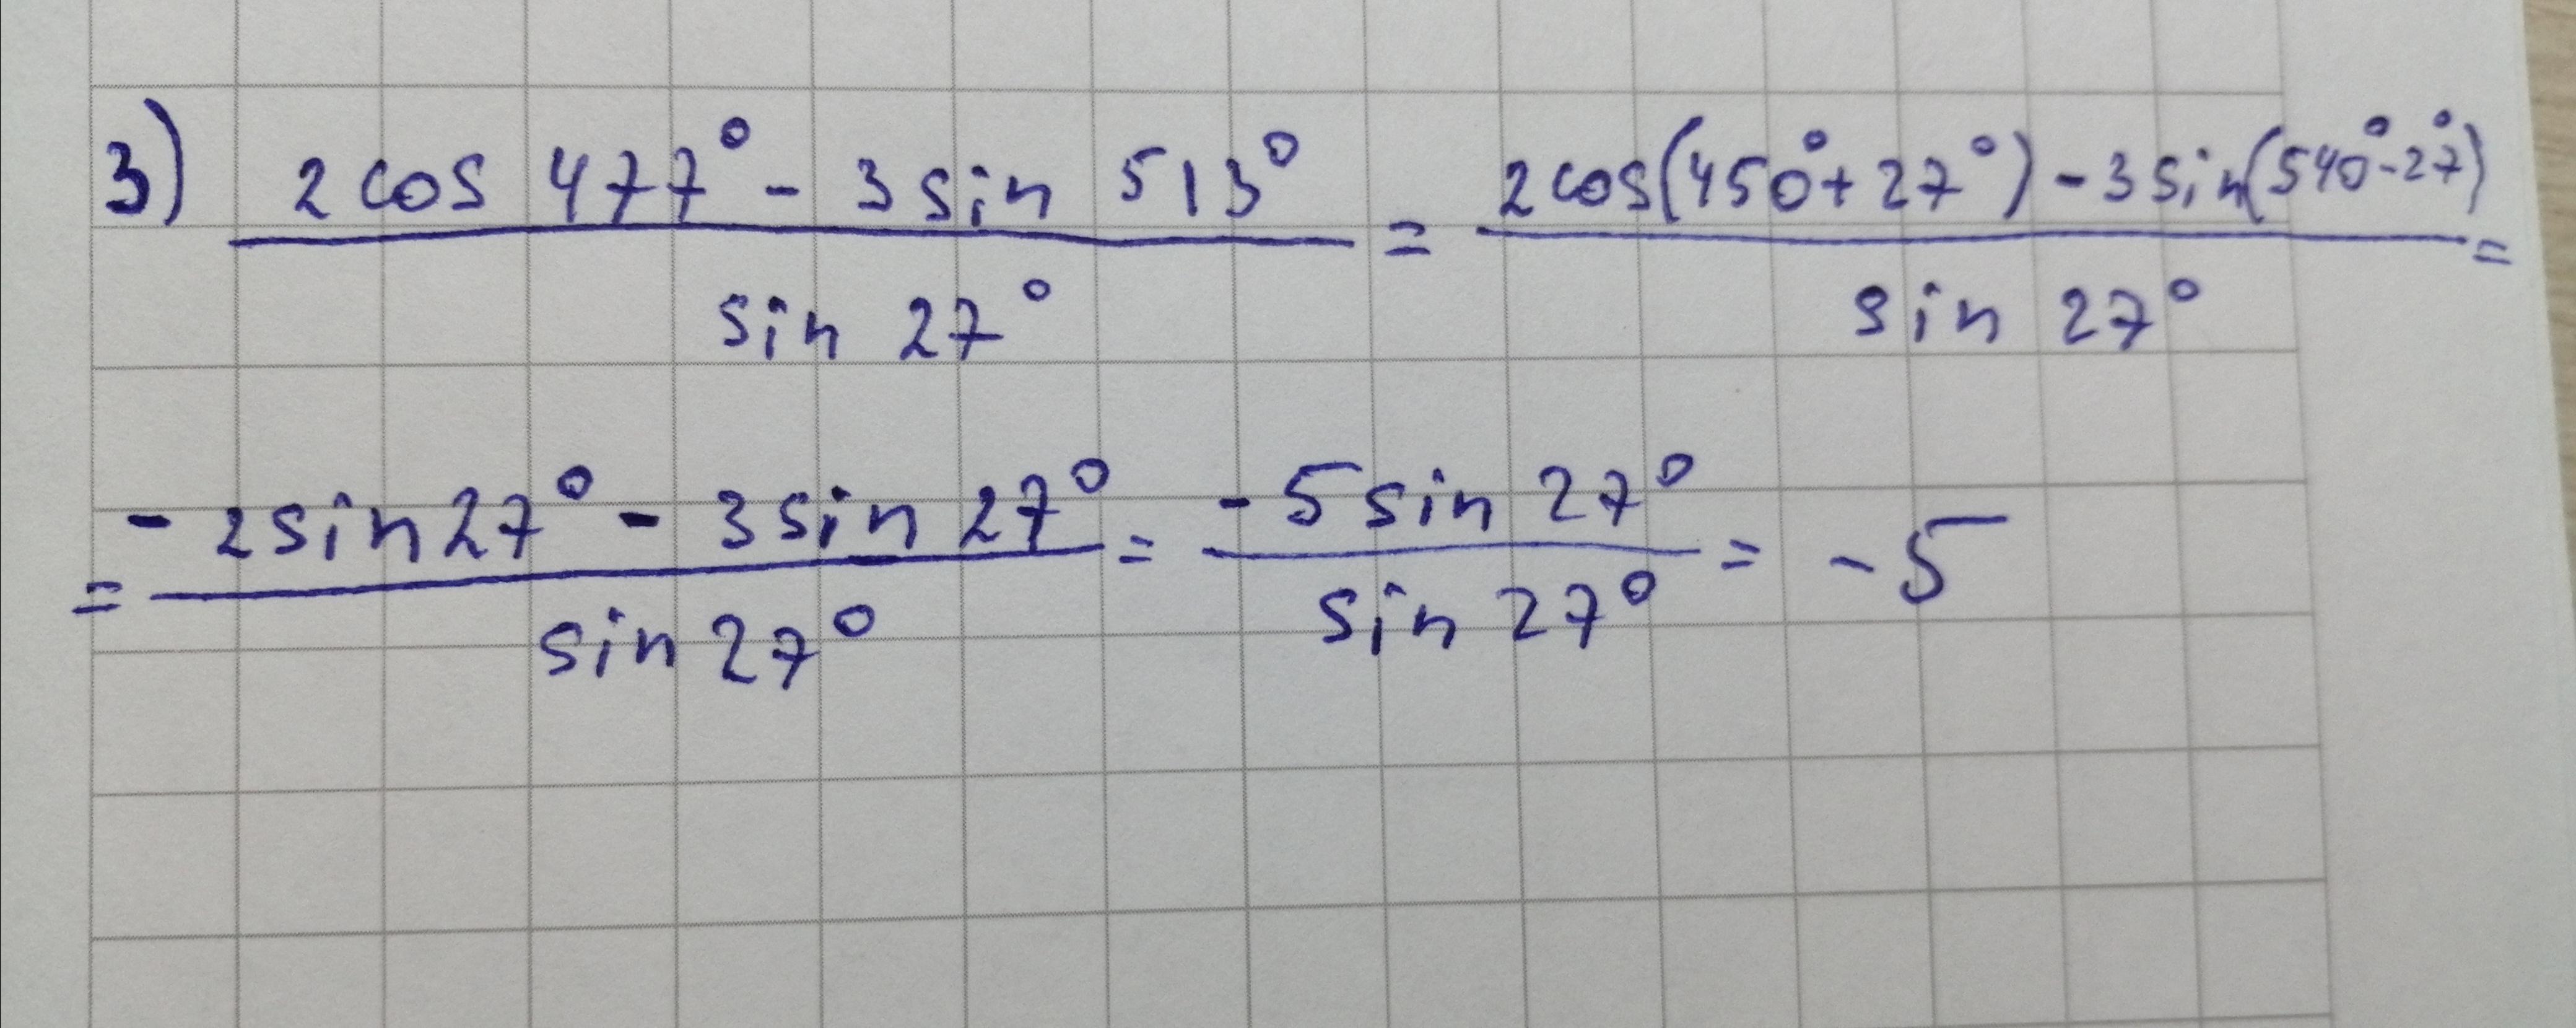 3) (2 cos 477° - 3 sin 513°) / (sin 27°) = (2 cos(450° + 27°) - 3 sin(540° - 27°)) / (sin 27°) =
= (-2 sin 27° - 3 sin 27°) / (sin 27°) = (-5 sin 27°) / (sin 27°) = -5